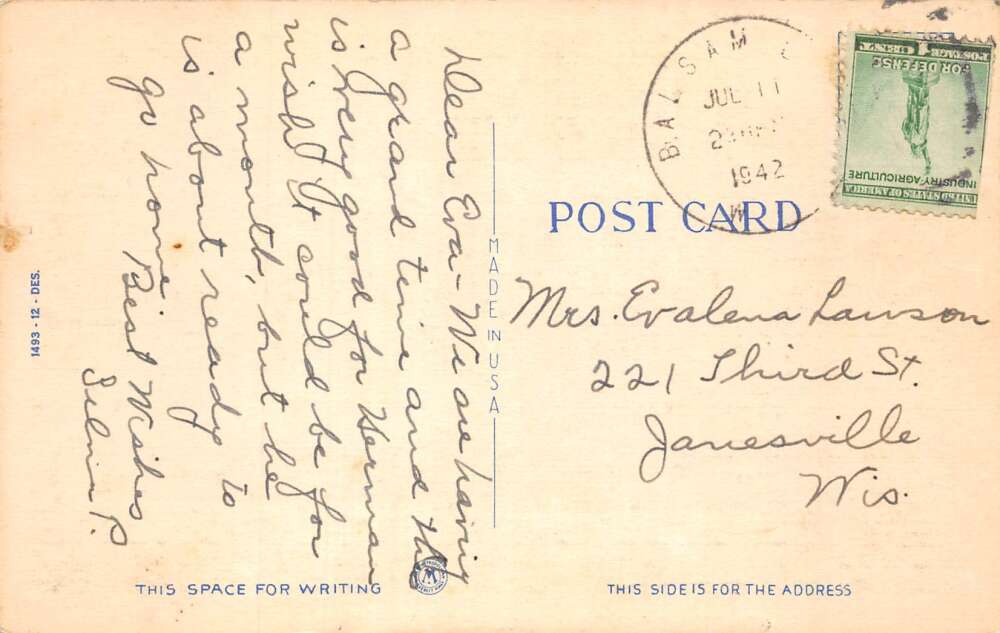 Dear Eva - We are having
a grand time and this
is very good for Herman
wish It could be for
a month, but he
is about ready to
go home
Best Wishes
Selma P.
BALSAM L
JUL 11
1942
W
UNITED STATES OF AMERICA
INDUSTRY-AGRICULTURE
FOR DEFENSE
1 CENT
POSTAGE
POST CARD
Mrs. Evalena Lawson
221 Third St.
Janesville
Wis.
MADE IN USA
1493 - 12 - DES.
THIS SPACE FOR WRITING
M
THIS SIDE IS FOR THE ADDRESS